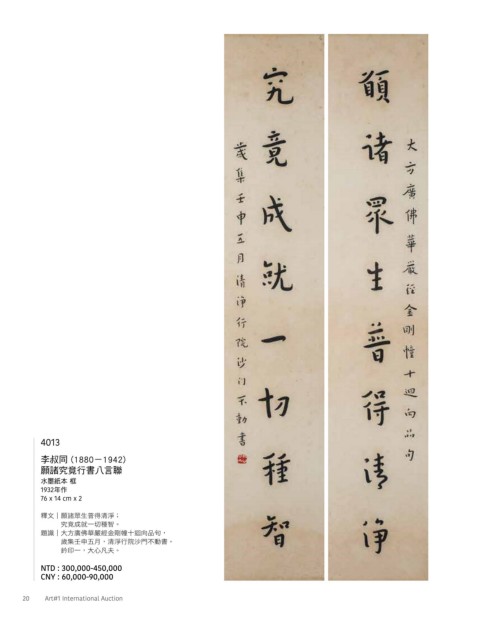 大方廣佛華嚴經金剛幢十迴向品句
願諸眾生普得清淨
究竟成就一切種智
歲集壬申五月清淨行院沙门不動書
4013
李叔同 (1880－1942)
願諸究竟行書八言聯
水墨紙本 框
1932年作
76 x 14 cm x 2
釋文｜願諸眾生普得清淨；
究竟成就一切種智。
題識｜大方廣佛華嚴經金剛幢十迴向品句，
歲集壬申五月，清淨行院沙門不動書。
鈐印一，大心凡夫。
NTD : 300,000-450,000
CNY : 60,000-90,000
20 Art#1 International Auction